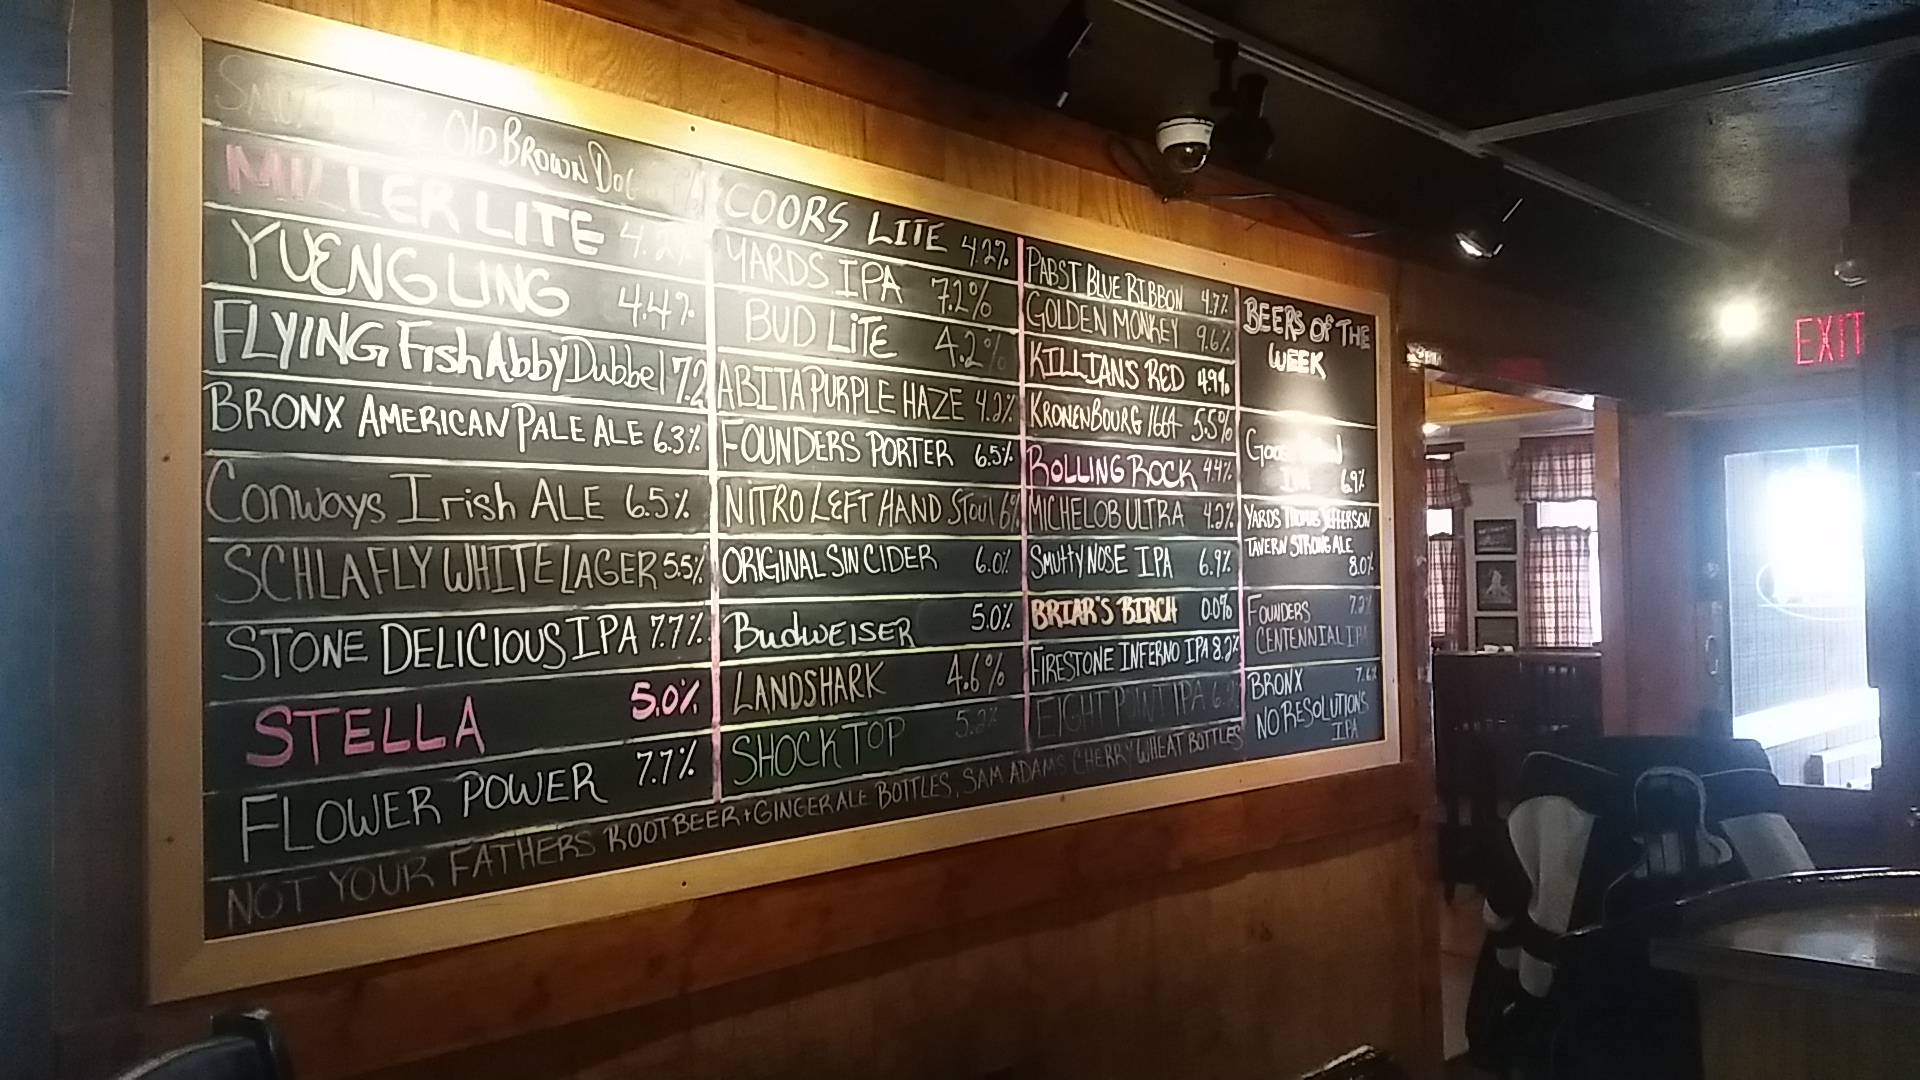 Old Brown Dog
MILLER LITE 4.2%
YUENGLING 4.4%
FLYING Fish Abby Dubbel 7.2
BRONX AMERICAN PALE ALE 6.3%
Conways Irish ALE 6.5%
SCHLAFLY WHITE LAGER 5.5%
STONE DELICIOUS IPA 7.7%
STELLA 5.0%
FLOWER POWER 7.7%
COORS LITE 4.2%
YARDS IPA 7.2%
BUD LITE 4.2%
ABITA PURPLE HAZE 4.2%
FOUNDERS PORTER 6.5%
NITRO LEFT HAND Stout 6%
ORIGINAL SIN CIDER 6.0%
BUDWEISER 5.0%
LANDSHARK 4.6%
SHOCK TOP 5.2%
PABST BLUE RIBBON 4.7%
GOLDEN MONKEY 9.6%
KILLIANS RED 4.9%
KRONENBOURG 1664 5.5%
ROLLING ROCK 4.4%
MICHELOB ULTRA 4.2%
SMUTTY NOSE IPA 6.9%
BRIAR'S BIRCH 0.0%
FIRESTONE INFERNO IPA 8.2%
EIGHT POINT IPA
BEERS OF THE
WEEK
IPA 6.9%
YARDS THOMAS JEFFERSON
TAVERN STRONG ALE
8.0%
FOUNDERS 7.2%
CENTENNIAL IPA
BRONX 7.6%
NO RESOLUTIONS
IPA
NOT YOUR FATHERS ROOTBEER + GINGERALE BOTTLES, SAM ADAMS CHERRY WHEAT BOTTLES
EXIT